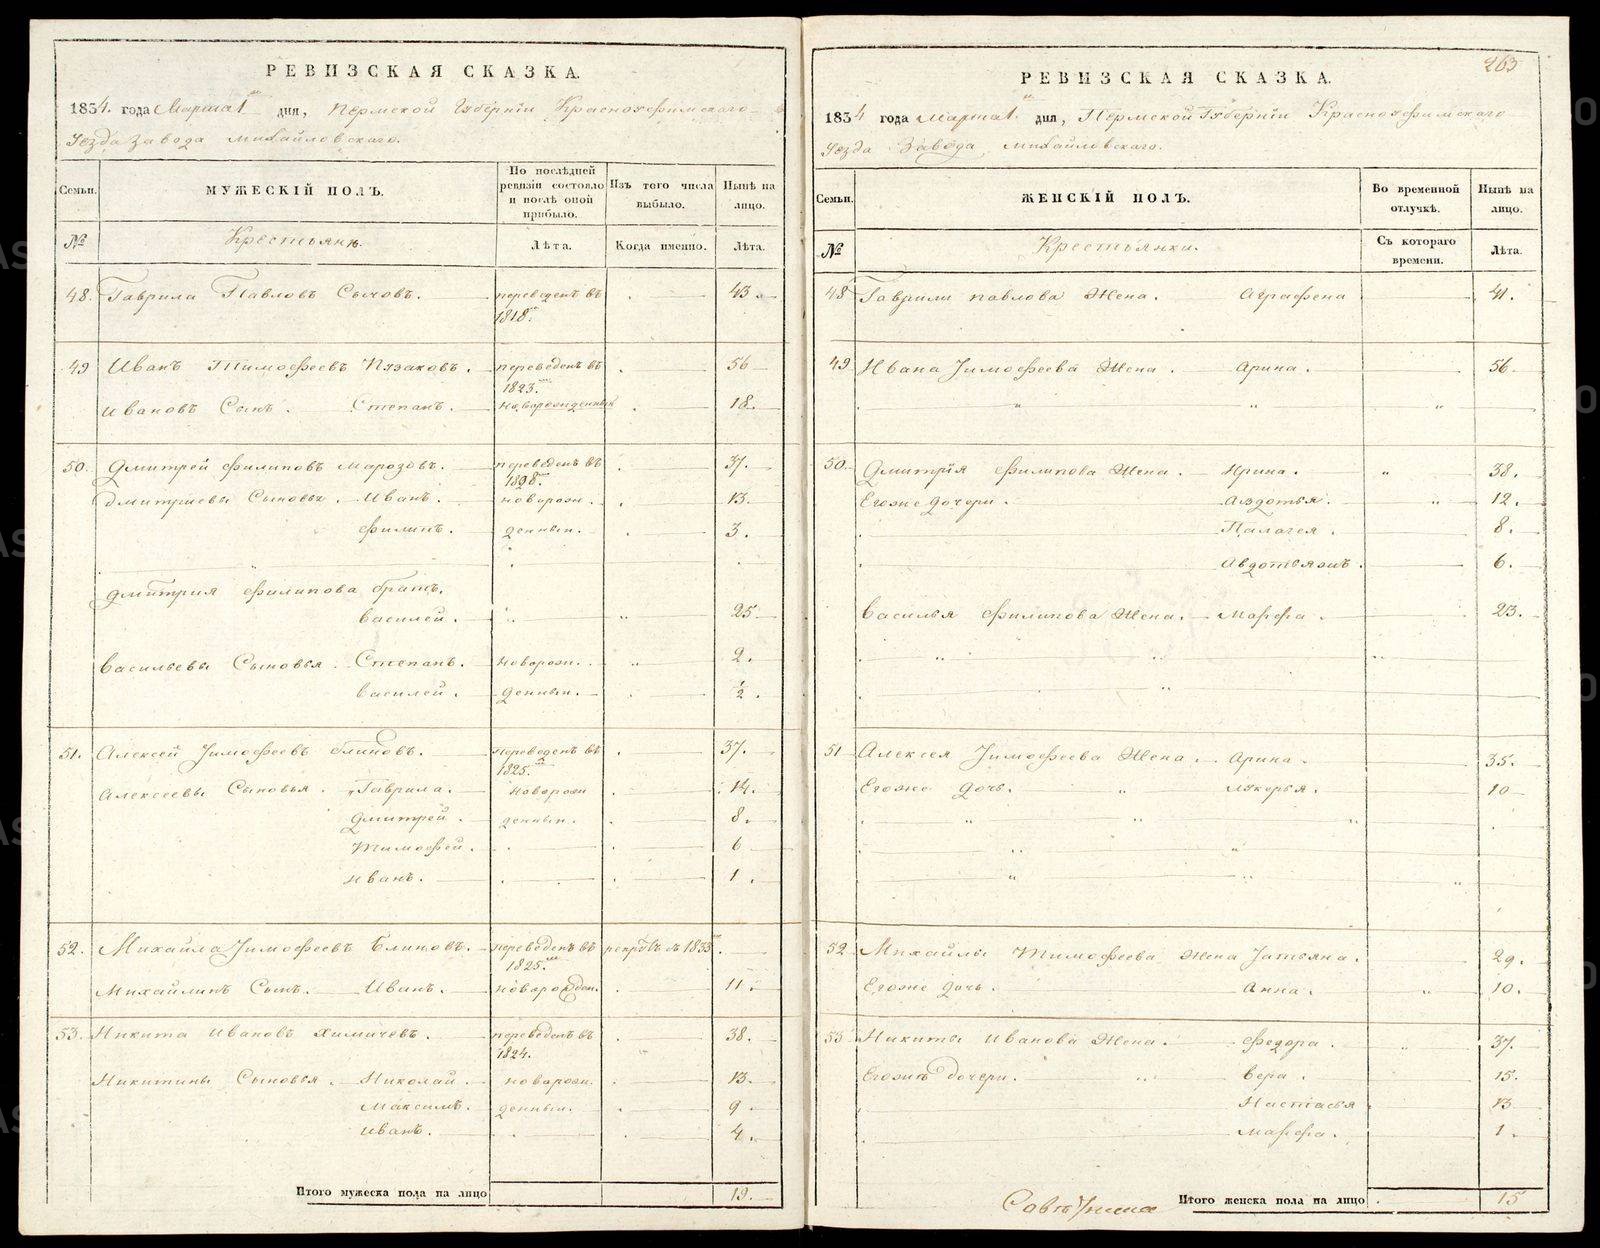 РЕВИЗСКАЯ СКАЗКА.
1834. года Марта 1 дня, Пермской Губернiи Красноуфимскаго
Уезда Завода Михайловскаго.
Семьи. МУЖЕСКIЙ ПОЛЪ. По послѣдней ревизiи состояло и послѣ оной прибыло. Изъ того числа выбыло. Нынѣ на лицо.
№ Крестьянъ. Лѣта. Когда именно. Лѣта.
48. Гаврила Павловъ Сычовъ. переведенъ въ 43.
1818.
49 Иванъ Тимофеевъ Пузаковъ. переведенъ въ 56
1823.
Ивановъ Сынъ. Степанъ. новорожденный 18.
50. Дмитрей Филиповъ Марозовъ. переведенъ въ 37.
Дмитриевы Сыновья. Иванъ. новорож. 13.
Филипъ. денныи. 3.
Дмитрия Филипова братъ.
Василей. 25
Васильевы Сыновья. Степанъ. новорож. 2.
Василей. денныи. 1/2.
51. Алексей Тимофеевъ Блиновъ. переведенъ въ 37.
1825.
Алексеевы Сыновья. Гаврила. новорож 14.
Дмитрей. денныи. 8.
Тимофей. 6
Иванъ. 1.
52. Михайла Тимофеевъ Блиновъ. переведенъ въ 1833
1825.
Михайлинъ Сынъ. Иванъ. новорожден. 11.
53. Никита Ивановъ Химичевъ. переведенъ въ 38.
1824.
Никитины Сыновья. Николай. новорож. 13.
Максимъ. денныи. 9.
Иванъ. 4.
Итого мужеска пола на лицо 19.
263
РЕВИЗСКАЯ СКАЗКА.
1834 года Марта 1 дня, Пермской Губернiи Красноуфимскаго
Уезда Завода Михайловскаго.
Семьи. ЖЕНСКIЙ ПОЛЪ. Во временной отлучкѣ. Нынѣ на лицо.
№ Крестьянки. Съ котораго времени. Лѣта.
48 Гаврилы Павлова Жена. Аграфена 41.
49 Ивана Тимофеева Жена. Арина. 56
50. Дмитрiя Филипова Жена. Ирина. 38.
Егоже дочери. Авдотья. 12.
Палагея. 8.
Авдотьяжъ. 6.
Василья Филипова Жена. Марфа. 23.
51 Алексея Тимофеева Жена. Арина. 35.
Егоже Дочь. Лукерья. 10
52 Михайлы Тимофеева Жена Татьяна. 29.
Егоже дочь. Анна. 10.
53 Никиты Иванова Жена. Федора. 37.
Егожъ дочери. Вера. 15.
Настасья 13
Марфа. 1.
Итого женска пола на лицо 15